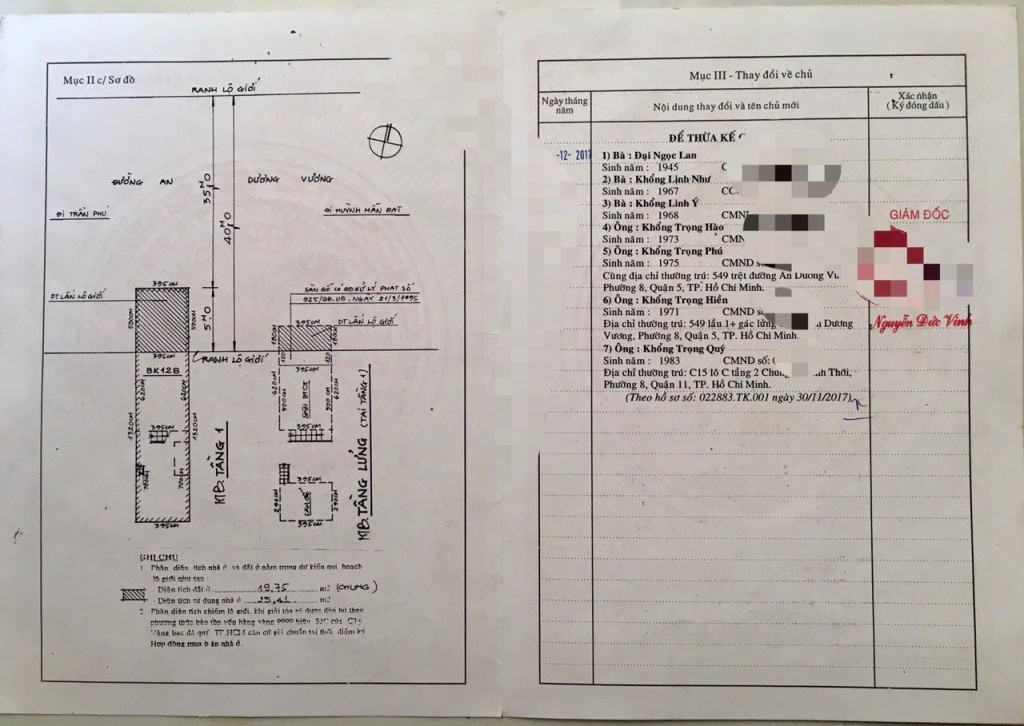 Mục II c/ Sơ đồ
RANH LỘ GIỚI
ĐƯỜNG AN DƯƠNG VƯƠNG
35M0
40M0
ĐI TRẦN PHÚ
ĐI HUỲNH MẪN ĐẠT
395CM
DT LẤN LỘ GIỚI
500CM
500CM
5M0
SÀN GỖ CÓ QĐ XỬ LÝ PHẠT SỐ
925/QĐ.UB. NGÀY 21/3/1995
395CM
DT LẤN LỘ GIỚI
180CM
180CM
120
120
395CM
RANH LỘ GIỚI
395CM
BK12B
620CM
1320CM
1320CM
620CM
500CM
500CM
620CM
395CM
395CM
700CM
700CM
395CM
395CM
290CM
290CM
395CM
MB. TẦNG 1
MB. TẦNG LỬNG (TẠI TẦNG 1)
GHI CHÚ
1. Phần diện tích nhà ở và đất ở nằm trong dự kiến qui hoạch
lộ giới như sau :
- Diện tích đất ở 19,75 m2 (CHUNG)
- Diện tích sử dụng nhà ở 25,41 m2
2. Phần diện tích chiếm lộ giới, khi giải tỏa sẽ được đền bù theo
phương thức bảo tồn vốn bằng vàng 9999 hiệu SJC của CTy
Vàng bạc đá quý TP.HCM căn cứ giá chuẩn tại thời điểm ký
Hợp đồng mua bán nhà ở.
Mục III - Thay đổi về chủ
Ngày tháng
năm
Nội dung thay đổi và tên chủ mới
Xác nhận
(Ký đóng dấu)
ĐỂ THỪA KẾ
-12- 2017
1) Bà : Đại Ngọc Lan
Sinh năm : 1945 C
2) Bà : Khổng Lịnh Như
Sinh năm : 1967 CC
3) Bà : Khổng Linh Ý
Sinh năm : 1968 CMN
4) Ông : Khổng Trọng Hào
Sinh năm : 1973 CMN
5) Ông : Khổng Trọng Phú
Sinh năm : 1975 CMND s
Cùng địa chỉ thường trú: 549 trệt đường An Dương Vư
Phường 8, Quận 5, TP. Hồ Chí Minh.
6) Ông : Khổng Trọng Hiền
Sinh năm : 1971 CMND
Địa chỉ thường trú: 549 lầu 1+ gác lửng Dương
Vương, Phường 8, Quận 5, TP. Hồ Chí Minh.
7) Ông : Khổng Trọng Quý
Sinh năm : 1983 CMND số:
Địa chỉ thường trú: C15 lô C tầng 2 Chung Thới,
Phường 8, Quận 11, TP. Hồ Chí Minh.
(Theo hồ sơ số: 022883.TK.001 ngày 30/11/2017)
GIÁM ĐỐC
Nguyễn Đức Vinh